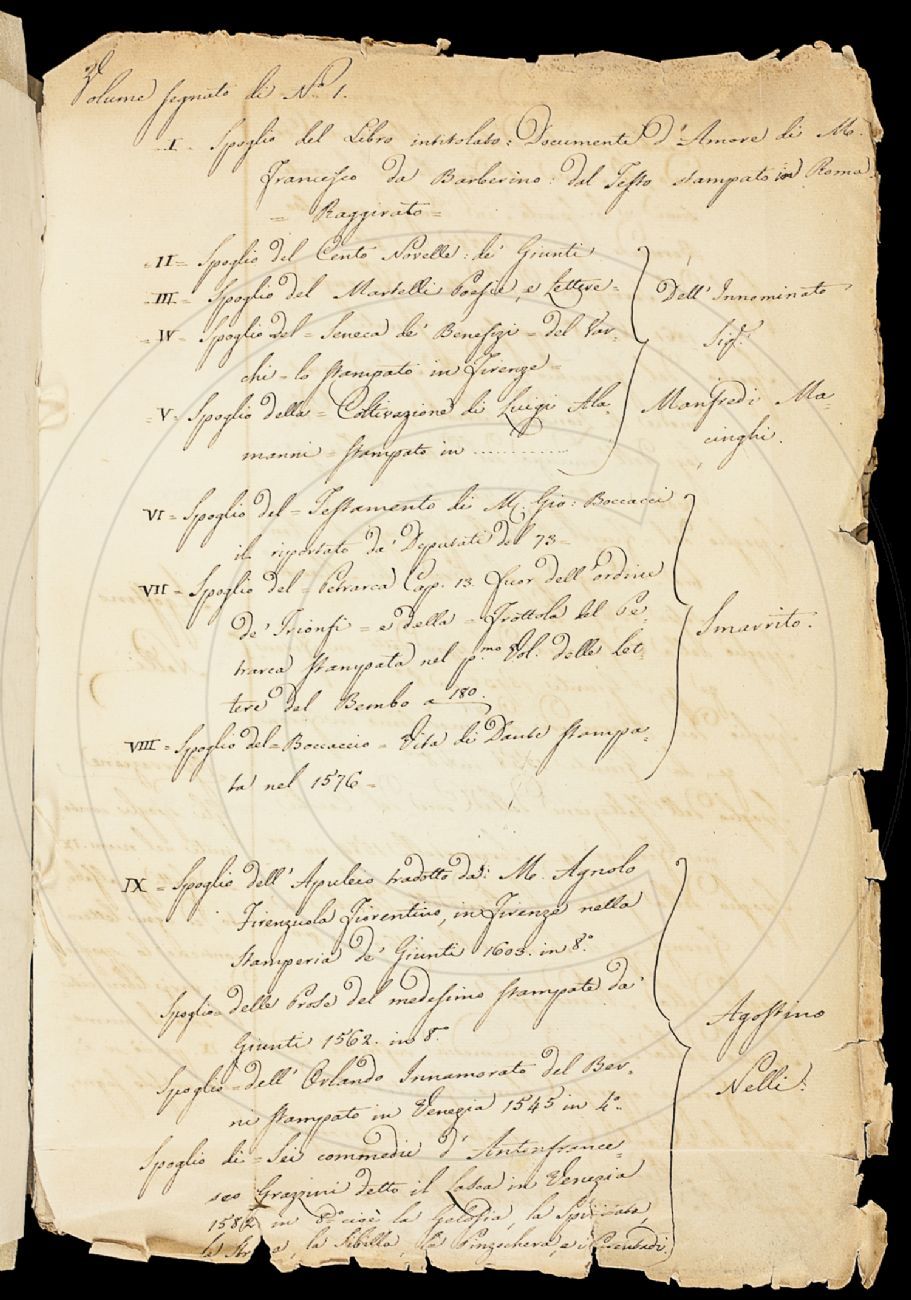 Volume segnato di Nº 1.
I - Spoglio del Libro intitolato: Documenti d'Amore di M.
Francesco da Barberino: dal Testo stampato in Roma
= Raggirato =
II = Spoglio del Cento Novelle: de' Giunti
III = Spoglio del Martelli Poesie, e Lettere =
Dell' Innominato
IV = Spoglio del = Seneca de' Benefizi = del Var-
Sigr.
chi = lo stampato in Firenze =
V = Spoglio della = Coltivazione di Luigi Ala-
Manfredi Ma-
manni = stampato in ............
cinghi.
VI = Spoglio del = Testamento di M. Gio: Boccacci
il riportato da' Deputati del 73 =
VII = Spoglio del = Petrarca Cap. 13. fuor dell' ordine
de' Trionfi = e della = Frottola del Pe-
Smarrito.
trarca stampata nel p.mo Vol. delle Let-
tere del Bembo a 180.
VIII = Spoglio del = Boccaccio = Vita di Dante stampa-
ta nel 1576 =
IX = Spoglio dell' Apuleio tradotto da: M. Agnolo
Firenzuola Fiorentino, in Firenze nella
stamperia de' Giunti 1603. in 8.º
Spoglio = delle Prose del medesimo stampate da'
Giunti 1562. in 8.º
Agostino
Spoglio = dell' Orlando Innamorato del Ber-
Nelli.
ni stampato in Venezia 1545 in 4º
Spoglio di = Sei commedie d' Antonfrance-
sco Grazzini detto il Lasca in Venezia
1582 in 8º cioè la Gelosia, la Spiritata,
la, la Sibilla, la Pinzochera, e i Parentadi.